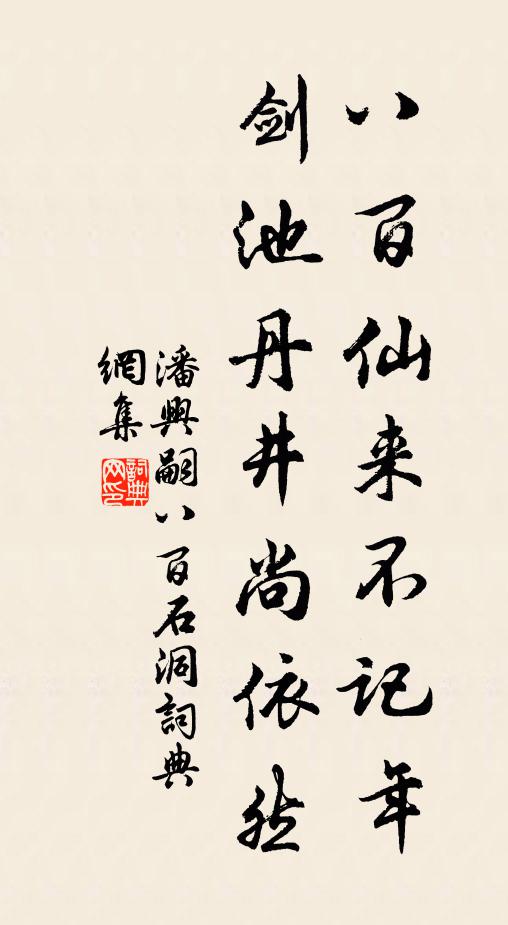 八百仙来不记年
剑池丹井尚依然
潘興嗣八百石洞詞典
網集
詞典网印